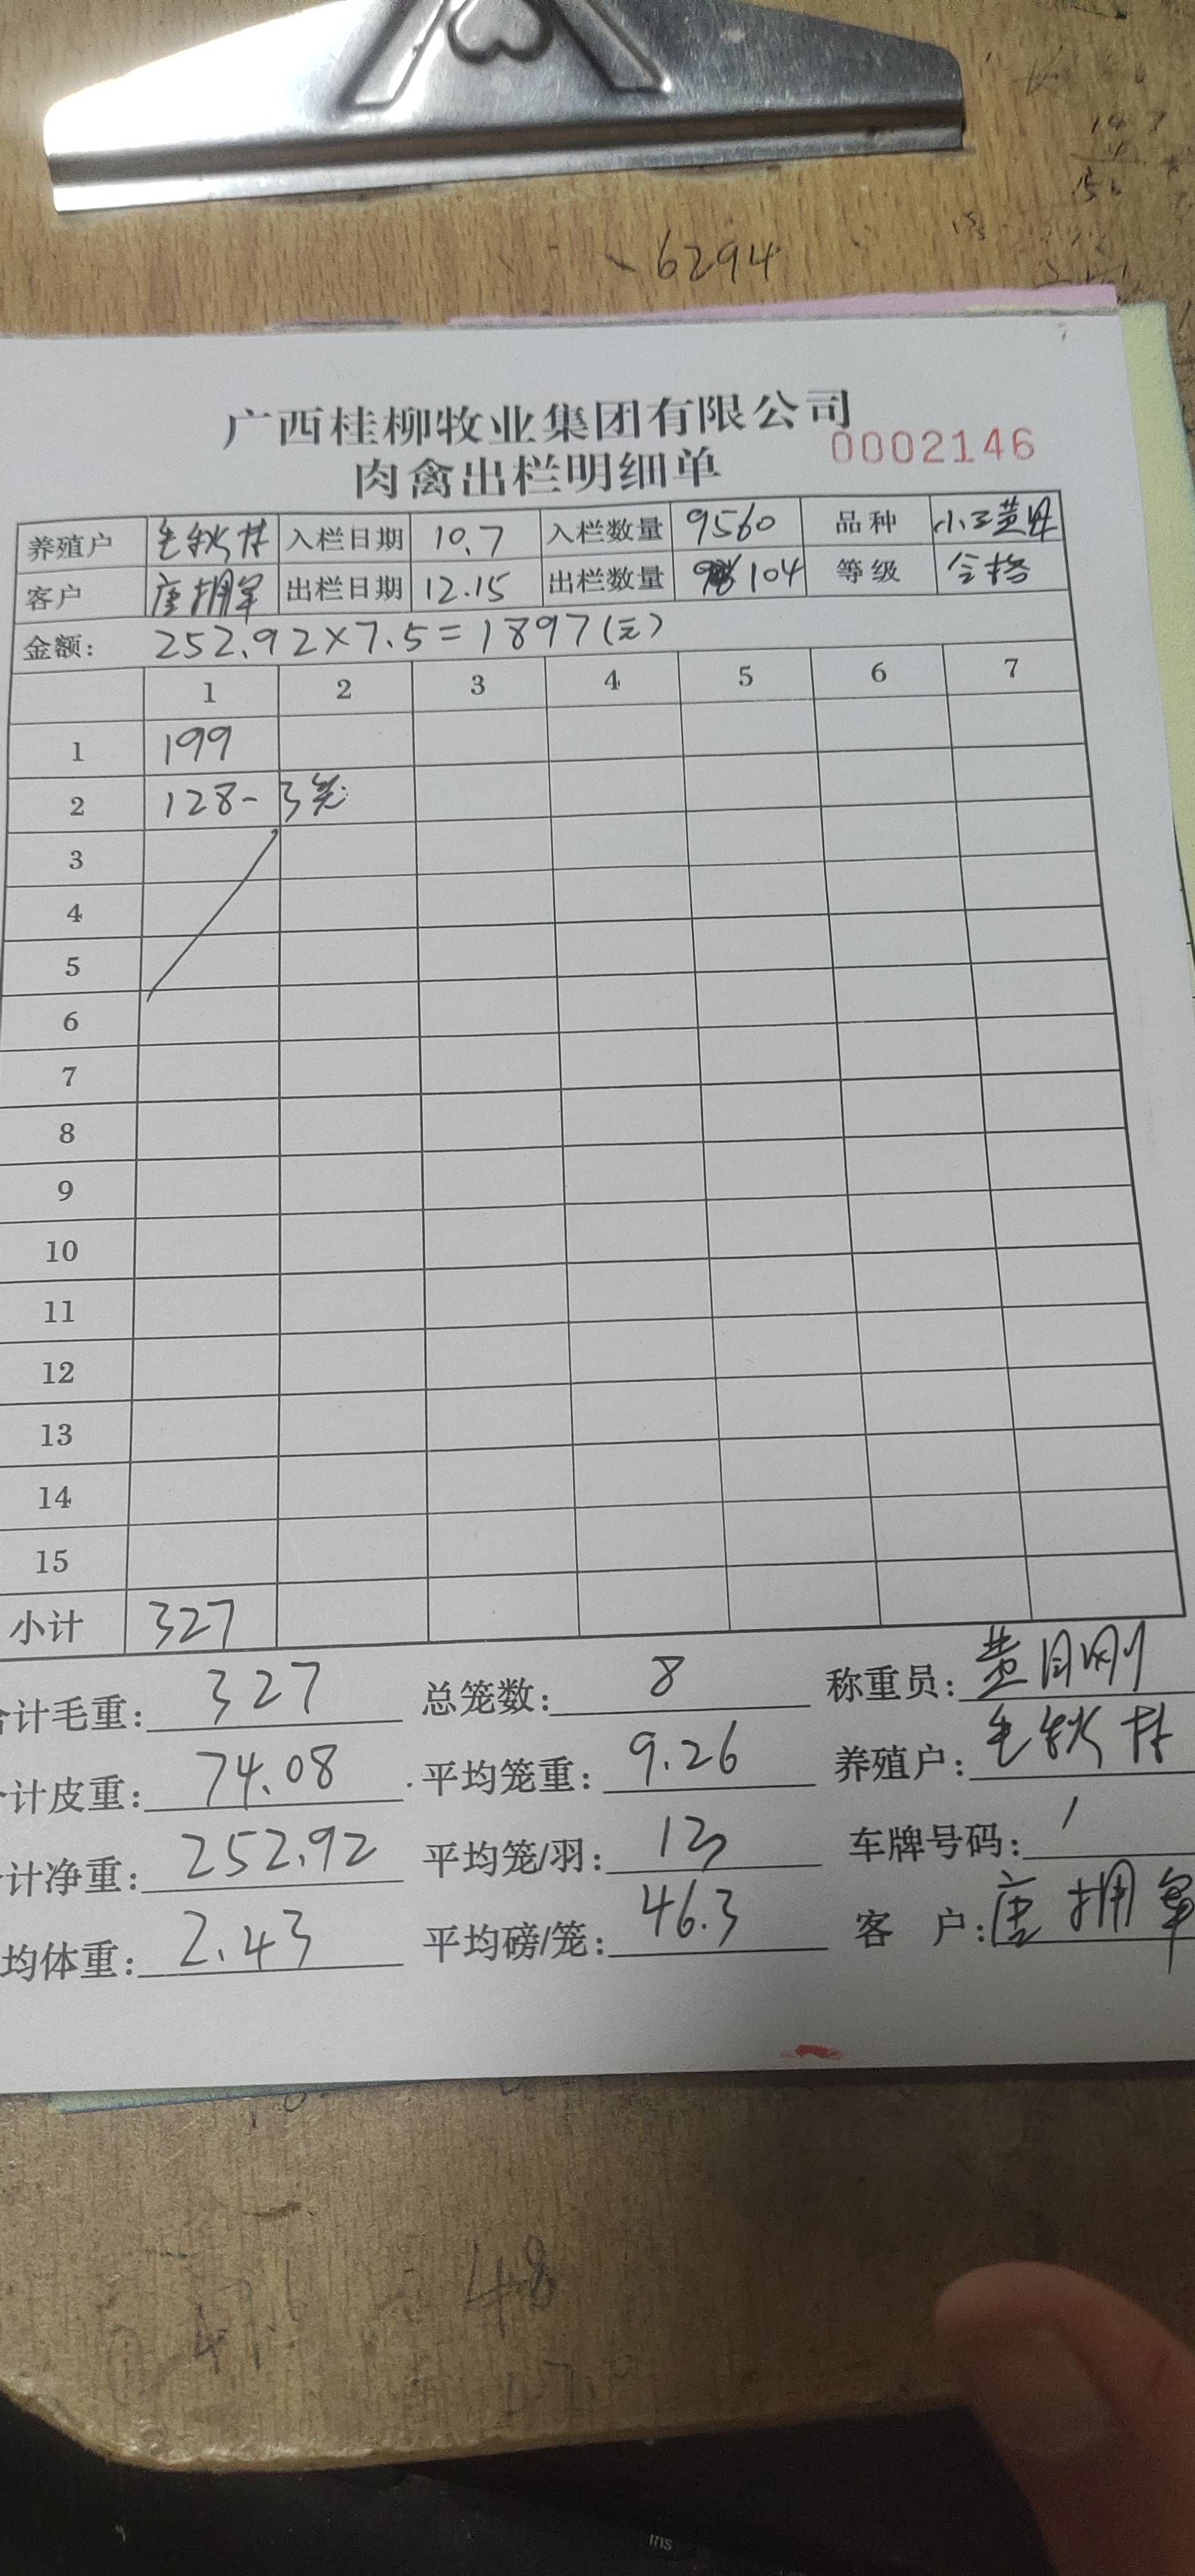 6294
广西桂柳牧业集团有限公司
肉禽出栏明细单 0002146
养殖户 毛秋林 入栏日期 10.7 入栏数量 9560 品种
客户 唐拥军 出栏日期 12.15 出栏数量 104 等级 合格
金额: 252.92×7.5=1897(元)
1 2 3 4 5 6 7
1 199
2 128-3笼
3
4
5
6
7
8
9
10
11
12
13
14
15
小计 327
合计毛重: 327 总笼数: 8 称重员: 黄月刚
计皮重: 74.08 平均笼重: 9.26 养殖户: 毛秋林
计净重: 252.92 平均笼/羽: 13 车牌号码: /
均体重: 2.43 平均磅/笼: 46.3 客 户: 唐拥军
48
ins